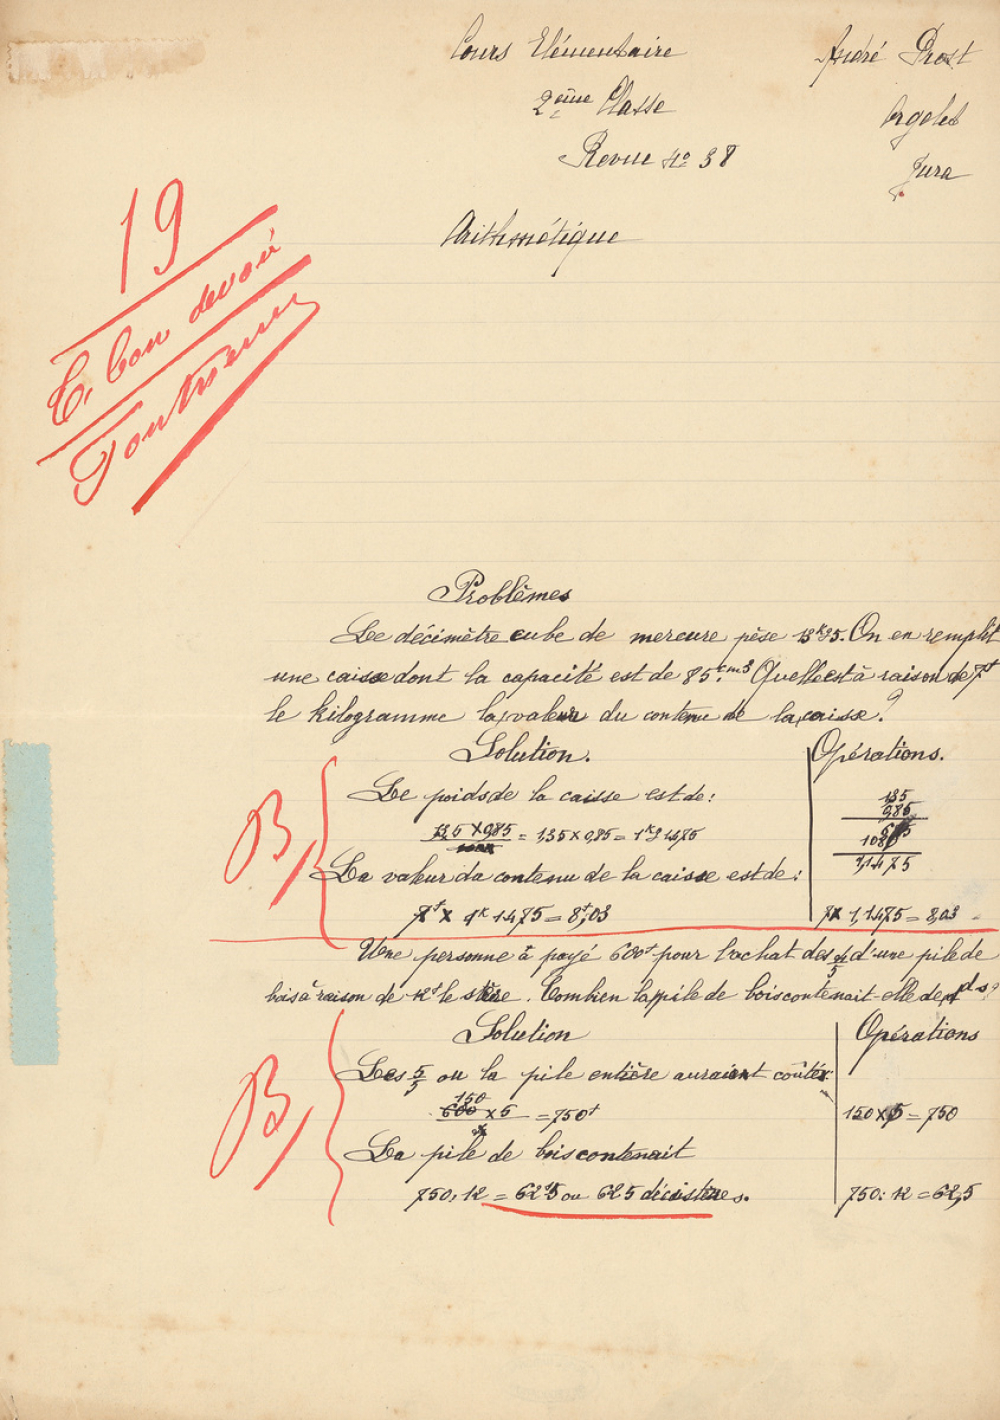 Cours Elémentaire
André Prost
2ème Classe
Orgelet
Revue No 38
Jura
Arithmétique
19
T. bon devoir
Problèmes
Le décimètre cube de mercure pèse 13k,5. On en remplit
une caisse dont la capacité est de 85cm3. Quelle est à raison de 7f
le kilogramme la valeur du contenu de la caisse?
Solution.
Opérations.
B,
Le poids de la caisse est de:
13,5 × 0,85 = 1,35 × 0,85 = 1kg 1475
135
0,85
675
1080
1,1475
La valeur du contenu de la caisse est de:
7f × 1k 1475 = 8f,03
7 × 1,1475 = 8,03
Une personne à payé 600f pour l'achat des 4/5 d'une pile de
bois à raison de 12f le stère. Combien la pile de bois contenait-elle de ds?
Solution
Opérations
B,
Les 5/5 ou la pile entière auraient coûtés:
150
600 × 5 = 750f
4
150 × 5 = 750
La pile de bois contenait
750: 12 = 62s5 ou 625 décistères.
750: 12 = 62,5